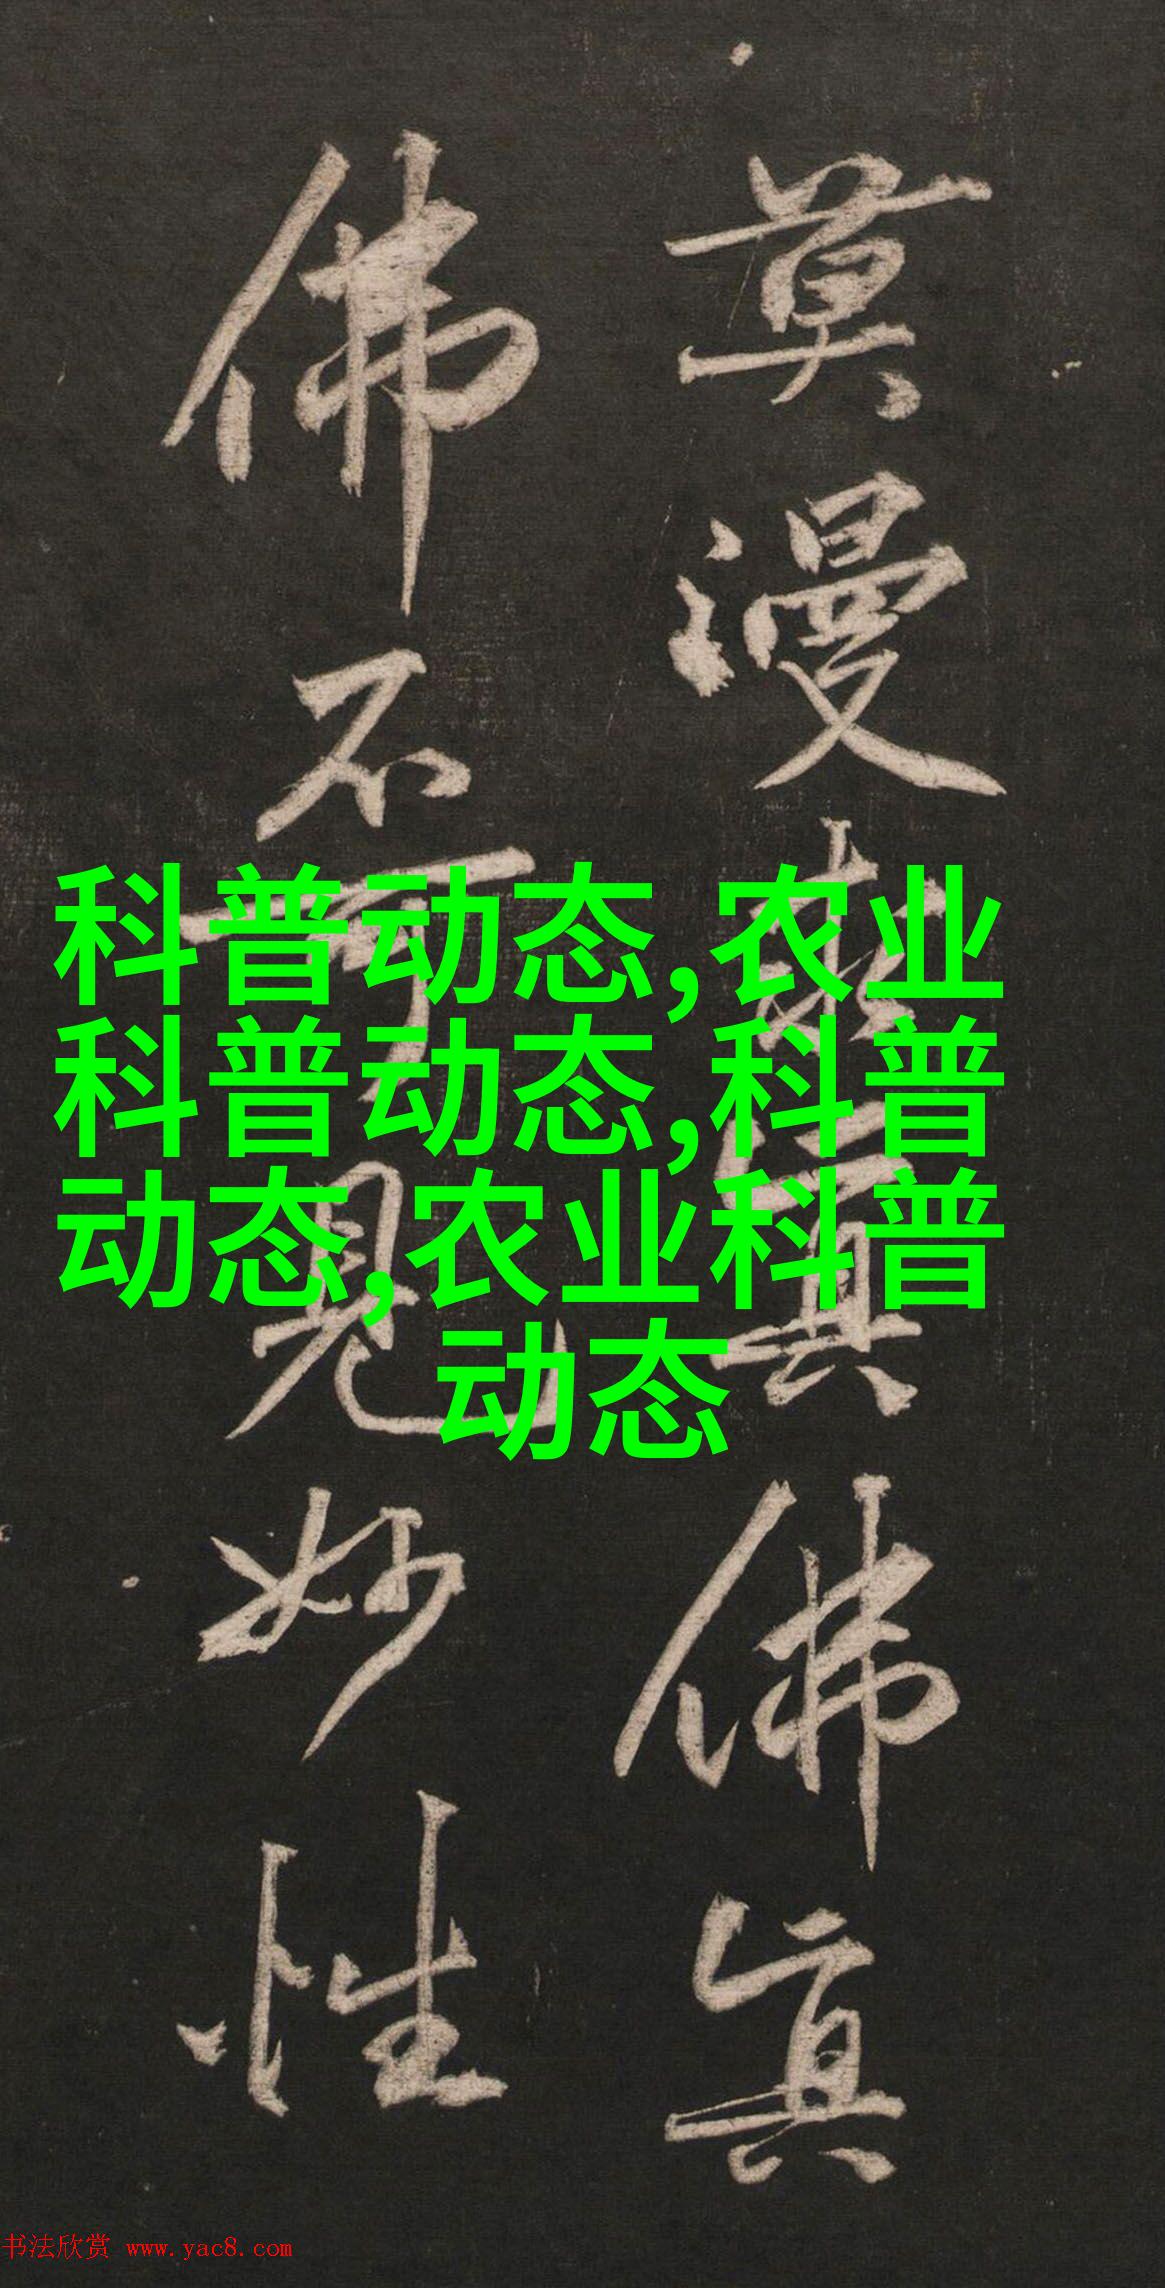 莫漫求真佛真
佛不可見妙性
科普动态,农业
科普动态,科普
动态,农业科普
动态
书法欣赏 www.yac8.com